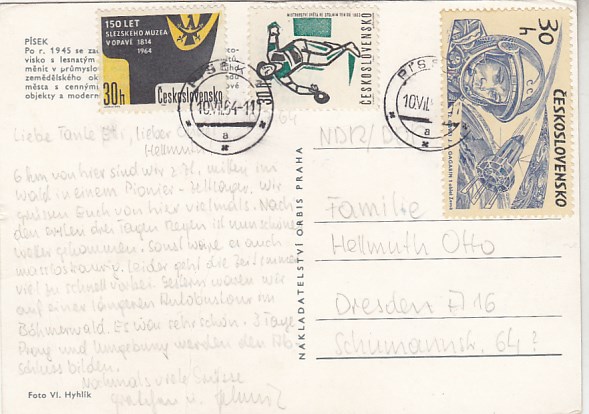 PÍSEK
Po r. 1945 se za
visko s lesnatým
měnic v průmyslo
zemědělského ok
města s cennými
objekty a modern
150 LET
SLEZSKÉHO MUZEA
V OPAVĚ 1814
1964
30h
Československo
30h
ČESKOSLOVENSKO
30h
ČESKOSLOVENSKO
GAGARIN
PÍSEK
10.VII.64-11
a
PÍSEK
10.VII
a
Liebe Tante lieber
Hellmuth
6 km von hier sind wir z. Zt. mitten im
Wald in einem Pionier-Zeltlager. Wir
grüssen Euch von hier vielmals. Nach
den ersten drei Tagen Regen ist nun schönes
Wetter gekommen. Sonst wäre es auch
Leider geht die Zeit immer
viel zu schnell vorbei. Gestern waren wir
auf einer längeren Autobustour im
Böhmerwald. Es war sehr schön. 3 Tage
Prag und Umgebung werden den Ab-
schluss bilden.
Nochmals viele Grüsse
u. Helmut
NDR/DDR
Familie
Hellmuth Otto
Dresden A 16
Schumannstr. 64
NAKLADATELSTVÍ ORBIS PRAHA
Foto Vl. Hyhlík